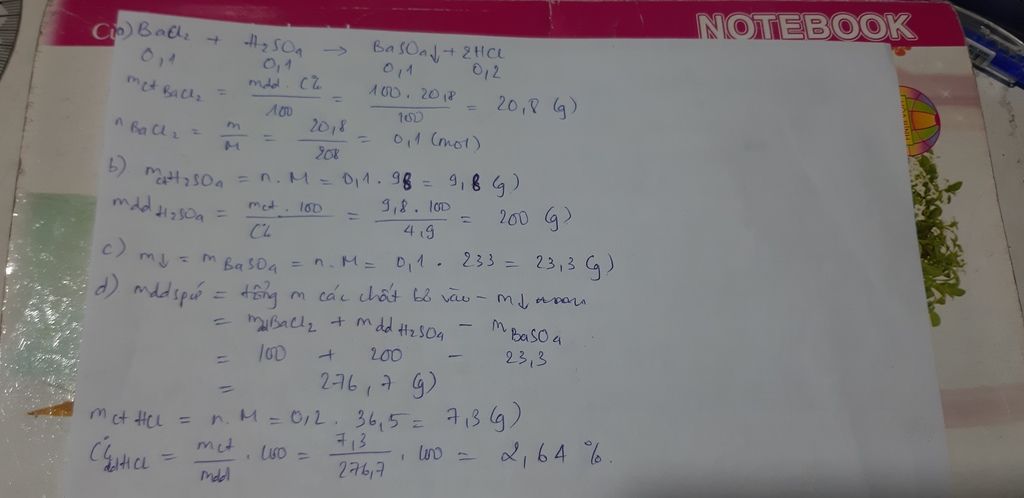 NOTEBOOK
a) BaCl₂ + H₂SO₄ → BaSO₄↓ + 2HCl
0,1 0,1 0,1 0,2
mct BaCl₂ = mdd . C% / 100 = 100 . 20,8 / 100 = 20,8 (g)
n BaCl₂ = m / M = 20,8 / 208 = 0,1 (mol)
b) mct H₂SO₄ = n . M = 0,1 . 98 = 9,8 (g)
mdd H₂SO₄ = mct . 100 / C% = 9,8 . 100 / 4,9 = 200 (g)
c) m↓ = m BaSO₄ = n . M = 0,1 . 233 = 23,3 (g)
d) mddspứ = tổng m các chất bỏ vào - m↓
= mdd BaCl₂ + mdd H₂SO₄ - m BaSO₄
= 100 + 200 - 23,3
= 276,7 (g)
mct HCl = n . M = 0,2 . 36,5 = 7,3 (g)
C% ddHCl = mct / mdd . 100 = 7,3 / 276,7 . 100 = 2,64 %.